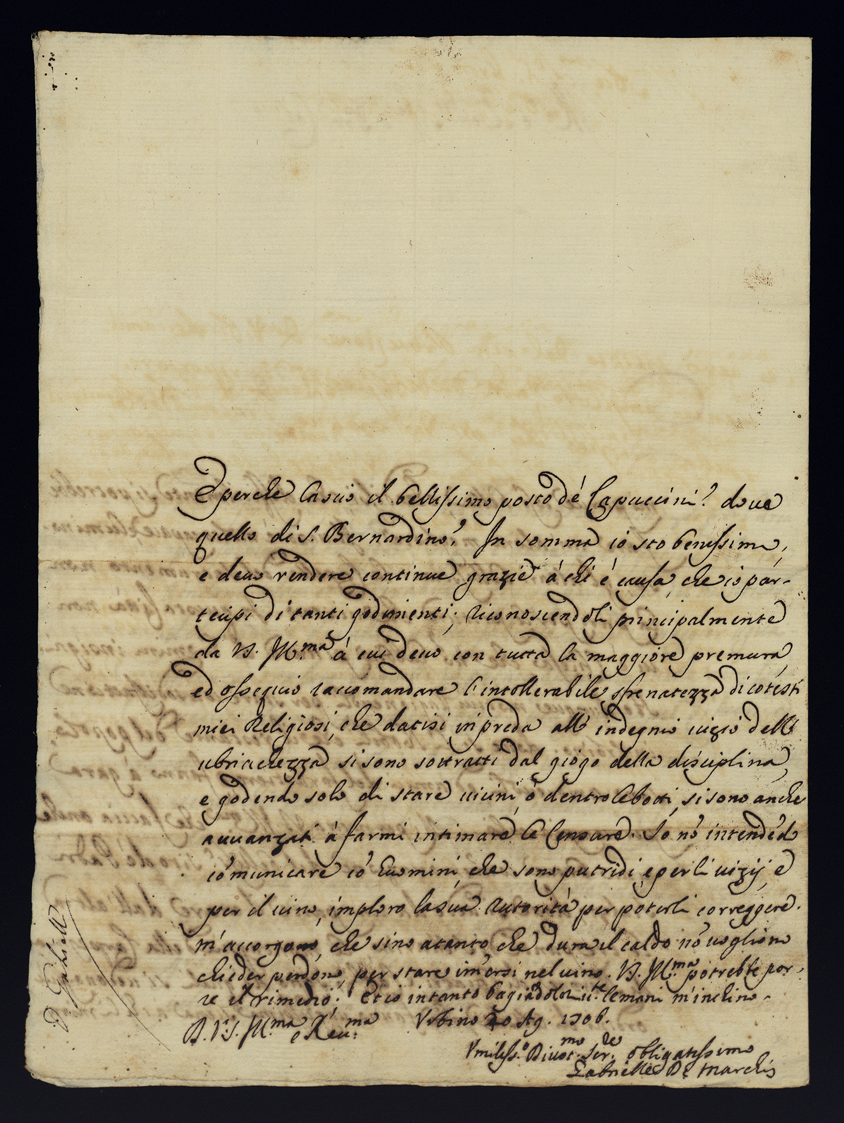 E perche lascio il bellissimo posto dè Capuccini? dove
quello di S. Bernardino? In somma io sto benissimo,
e devo rendere continue grazie à chi è causa, che io par-
tecipi di tanti godimenti; riconoscendoli principalmente
da V.S. Ill.ma à cui devo con tutta la maggiore premura,
ed ossequio raccomandare l'intollerabile sfrenatezza di cotesti
miei Religiosi, che datisi in preda all' indegnio vizio dell'
ubriachezza si sono sottratti dal giogo della disciplina,
e godendo solo di stare vicini ò dentro le botti, si sono anche
avvanzati à farmi intimare le Censure. Io nõ intendẽdo
cõmunicare cõ huomini, che sono putridi, e per li vizij e
per il vino, imploro la sua Autorità per poterli correggere.
m'accorgono, che sino a tanto che dura il caldo nõ voglion
chieder perdono, per stare im̃ersi nel vino. V.S. Ill.ma potrebbe por-
re il rimedio; et io intanto bagiãdole le mani m'inchino.
D. V.S. Ill.ma e Rev.ma Urbino 20 Ag. 1706.
Umiliss.o Divot.mo Ser.re obligatissimo
Gabrielle De Marchis
P. Gabriell